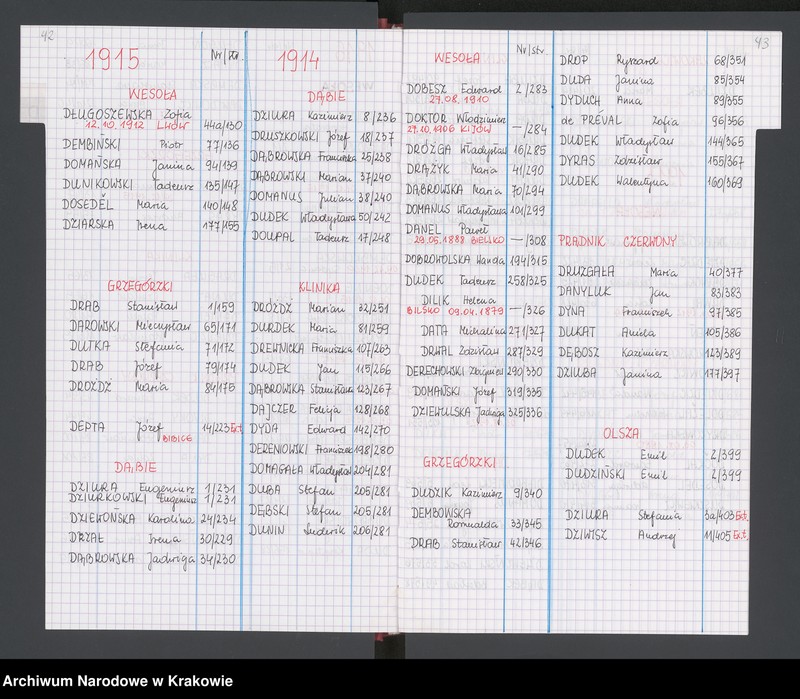 42
1915 Nr/str.
WESOŁA
DŁUGOSZEWSKA Zofia
12.10.1912 LWÓW 44a/130
DEMBIŃSKI Piotr 77/136
DOMAŃSKA Janina 94/139
DUNIKOWSKI Tadeusz 135/147
DOSEDĚL Maria 140/148
DZIARSKA Irena 177/155
GRZEGÓRZKI
DRAB Stanisław 1/159
DAROWSKI Mieczysław 65/171
DUTKA Stefania 71/172
DRAB Józef 79/174
DROŻDŻ Maria 84/175
DEPTA Józef 14/223 Ext.
BIBICE
DĄBIE
DZIURA Eugeniusz 1/231
DZIURKOWSKI Eugeniusz 1/231
DZIEWOŃSKA Karolina 24/234
DRZAŁ Irena 30/229
DĄBROWSKA Jadwiga 34/230
1914
DĄBIE
DZIURA Kazimierz 8/236
DRUSZKOWSKI Józef 18/237
DĄBROWSKA Franciszka 25/238
DĄBROWSKI Marian 37/240
DOMANUS Julian 38/240
DUDEK Władysława 50/242
DOUPAL Tadeusz 17/248
KLINIKA
DRÓŻDŻ Marian 32/251
DURDEK Maria 81/259
DREWNICKA Franciszka 107/263
DUDEK Jan 115/266
DĄBROWSKA Stanisława 123/267
DAJCZER Felicja 128/268
DYDA Edward 142/270
DERENIOWSKI Franciszek 198/280
DOMAGAŁA Władysław 204/281
DUBA Stefan 205/281
DĘBSKI Stefan 205/281
DUNIN Ludwik 206/281
WESOŁA Nr/str.
DOBESZ Edward 2/283
27.08.1910
DOKTOR Włodzimierz
27.10.1906 KIJÓW —/284
DRÓŻGA Władysław 16/285
DRĄŻYK Maria 41/290
DĄBROWSKA Maria 70/294
DOMANUS Władysława 101/299
DANEL Paweł
29.05.1888 BIELSKO —/308
DOBROWOLSKA Wanda 194/315
DUDEK Tadeusz 258/325
DILIK Helena
BILSKO 09.04.1879 —/326
DATA Michalina 271/327
DRWAL Zdzisław 287/329
DERECHOWSKI Zbigniew 290/330
DOMAŃSKI Józef 319/335
DZIEWULSKA Jadwiga 325/336
GRZEGÓRZKI
DUDZIK Kazimierz 9/340
DEMBOWSKA
Romualda 33/345
DRAB Stanisław 42/346
43
DROP Ryszard 68/351
DUDA Janina 85/354
DYDUCH Anna 89/355
de PRÉVAL Zofia 96/356
DUDEK Władysław 144/365
DYRAS Zdzisław 155/367
DUDEK Walentyna 160/369
PRĄDNIK CZERWONY
DRUZGAŁA Maria 40/377
DANYLUK Jan 83/383
DYNA Franciszek 97/385
DUKAT Aniela 105/386
DĘBOSZ Kazimierz 123/389
DZIUBA Janina 177/397
OLSZA
DUDEK Emil 2/399
DUDZIŃSKI Emil 2/399
DZIURA Stefania 3a/403 Ext.
DZIWISZ Andrzej 11/405 Ext.
Archiwum Narodowe w Krakowie